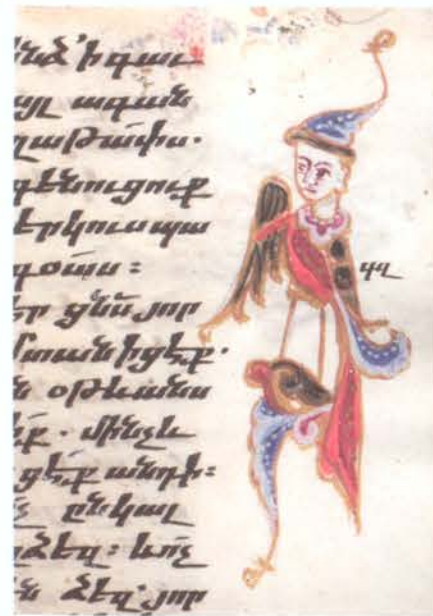 նձ՝ ի գաւ
յլ ագան
ղաթափս.
գենուցուք
երկուս պա
եր ցնս յոր
մտանիցէք.
ն օթևանս
էք. մինչև
ցէք անդի:
չ ընկալ
զձեզ: և ոչ
ն ձեզ. յոր